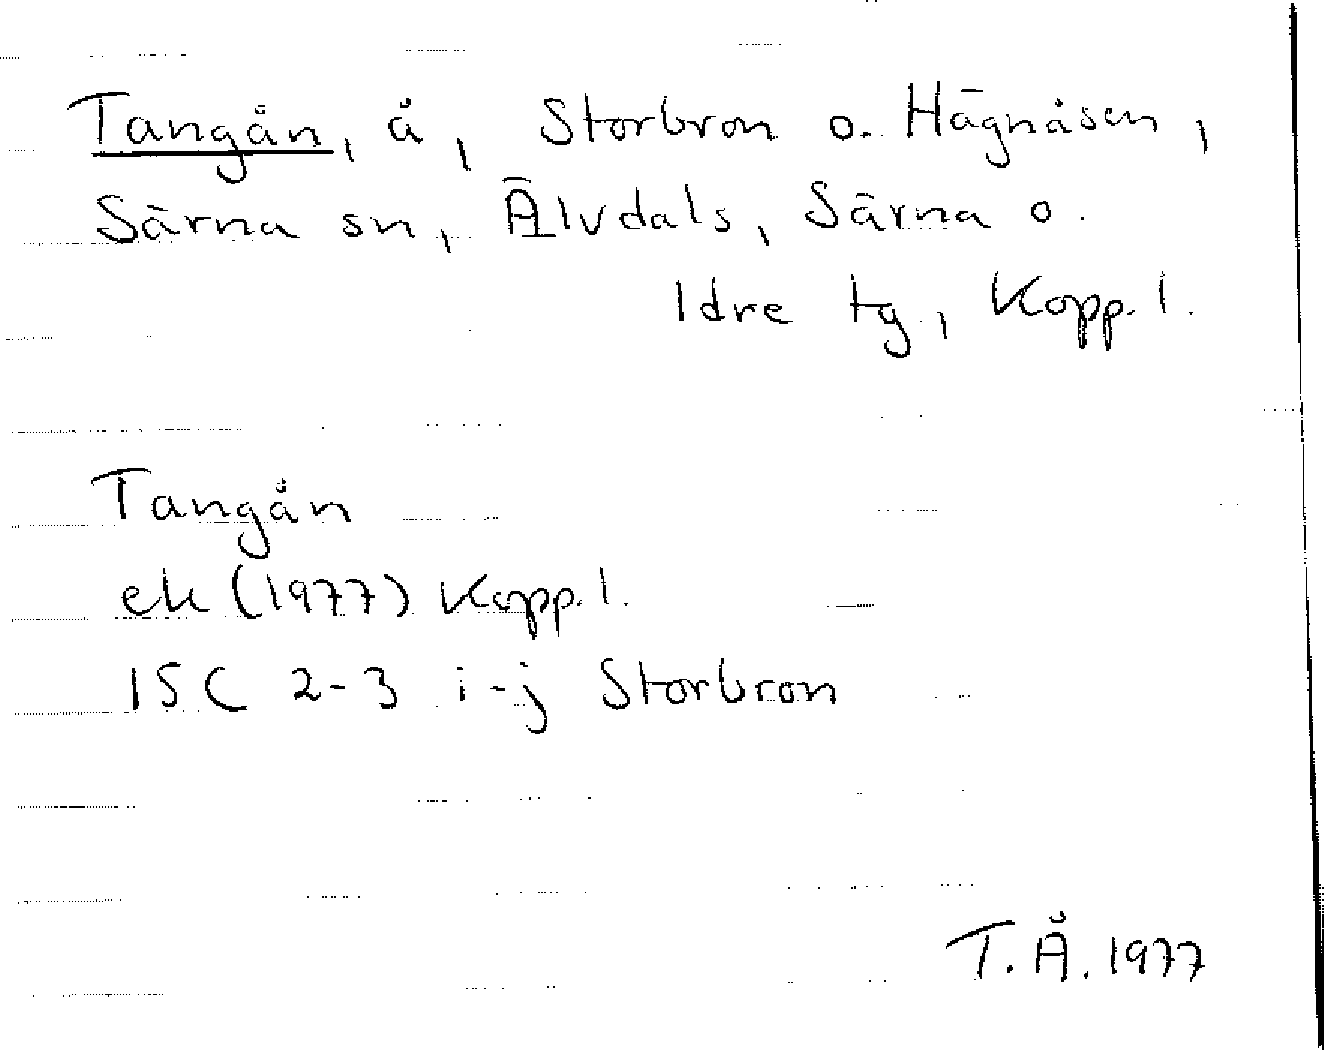 Tangån, å, Storbron o. Hägnåsen,
Särna sn, Älvdals, Särna o.
Idre tg, Kopp. l.
Tangån
ek (1977) Kopp. l.
15C 2-3 i-j Storbron
T. Å. 1977